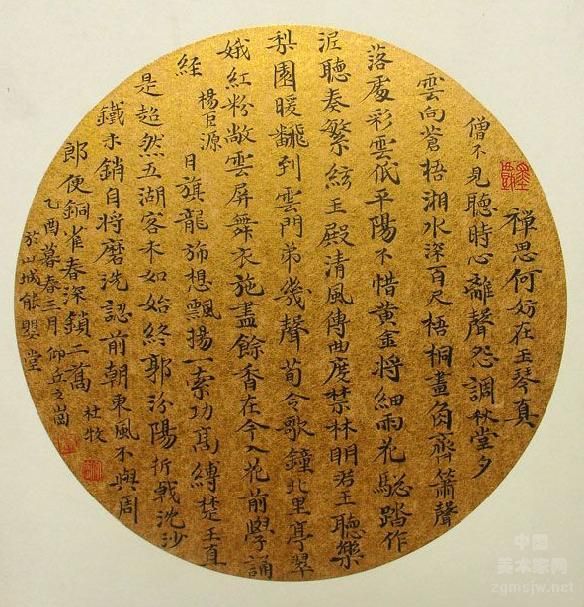 禪思何妨在玉琴真
僧不見聽時心離聲怨調秋堂夕
雲向蒼梧湘水深百尺梧桐畫閣齊簫聲
落處彩雲低平陽不惜黃金埒細雨花驄踏作
泥聽奏繁絃玉殿清風傳曲度禁林明君王聽樂
梨園暖翻到雲門第幾聲荀令歌鐘北里亭翠
娥紅粉敞雲屏舞衣施盡餘香在今入花前學誦
經 楊巨源 日旗龍旆想飄揚一索功高縛楚王直
是超然五湖客未如始終郭汾陽折戟沈沙
鐵未銷自將磨洗認前朝東風不與周
郎便銅雀春深鎖二喬 杜牧
乙酉暮春三月仰丘之
於山城能嬰堂
中国
美术家网
zgmsjw.net